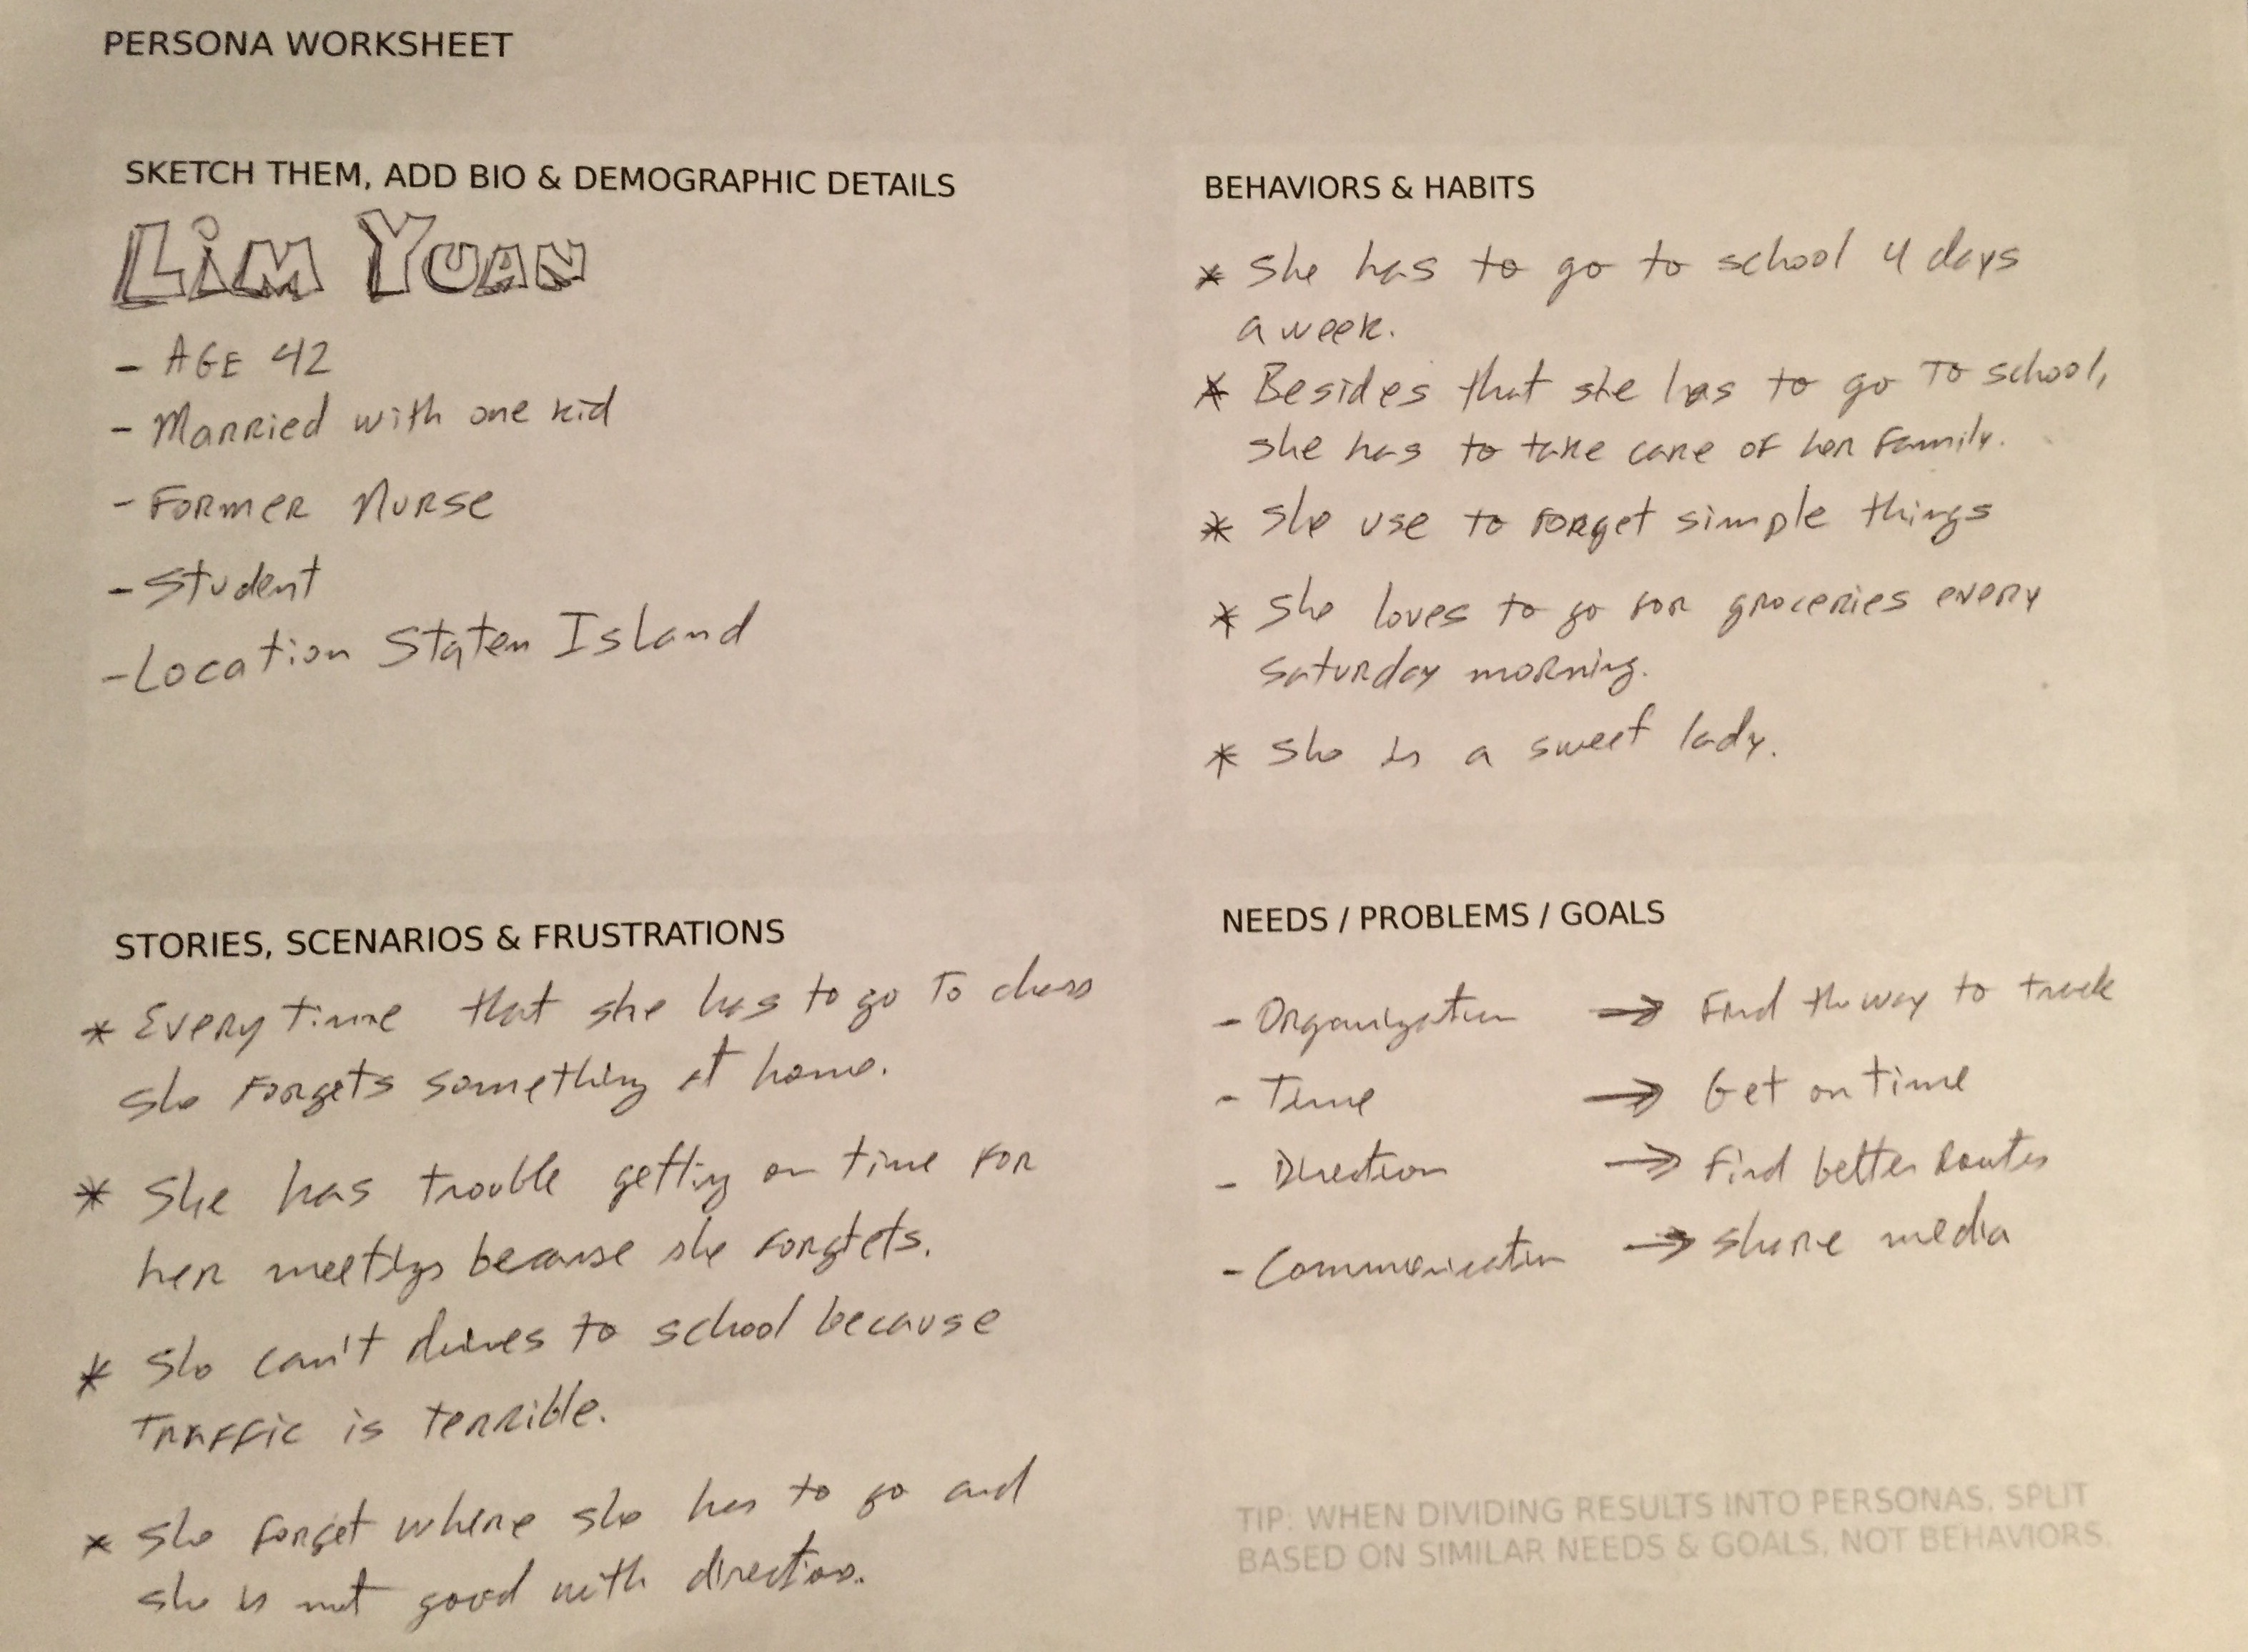 PERSONA WORKSHEET
SKETCH THEM, ADD BIO & DEMOGRAPHIC DETAILS
LiM YUAN
- AGE 42
- Married with one kid
- Former Nurse
- Student
- Location Staten Island
BEHAVIORS & HABITS
* She has to go to school 4 days
a week.
* Besides that she has to go to school,
she has to take care of her family.
* She use to forget simple things
* She loves to go for groceries every
saturday morning.
* She is a sweet lady.
STORIES, SCENARIOS & FRUSTRATIONS
* Every time that she has to go to class
she forgets something at home.
* She has trouble getting on time for
her meetings because she forgtets.
* She can't drives to school because
traffic is terrible.
* She forget where she has to go and
she is not good with direction.
NEEDS / PROBLEMS / GOALS
- Organization → Find the way to track
- Time → Get on time
- Direction → Find better Routes
- Communication → Share media
TIP: WHEN DIVIDING RESULTS INTO PERSONAS, SPLIT
BASED ON SIMILAR NEEDS & GOALS, NOT BEHAVIORS.